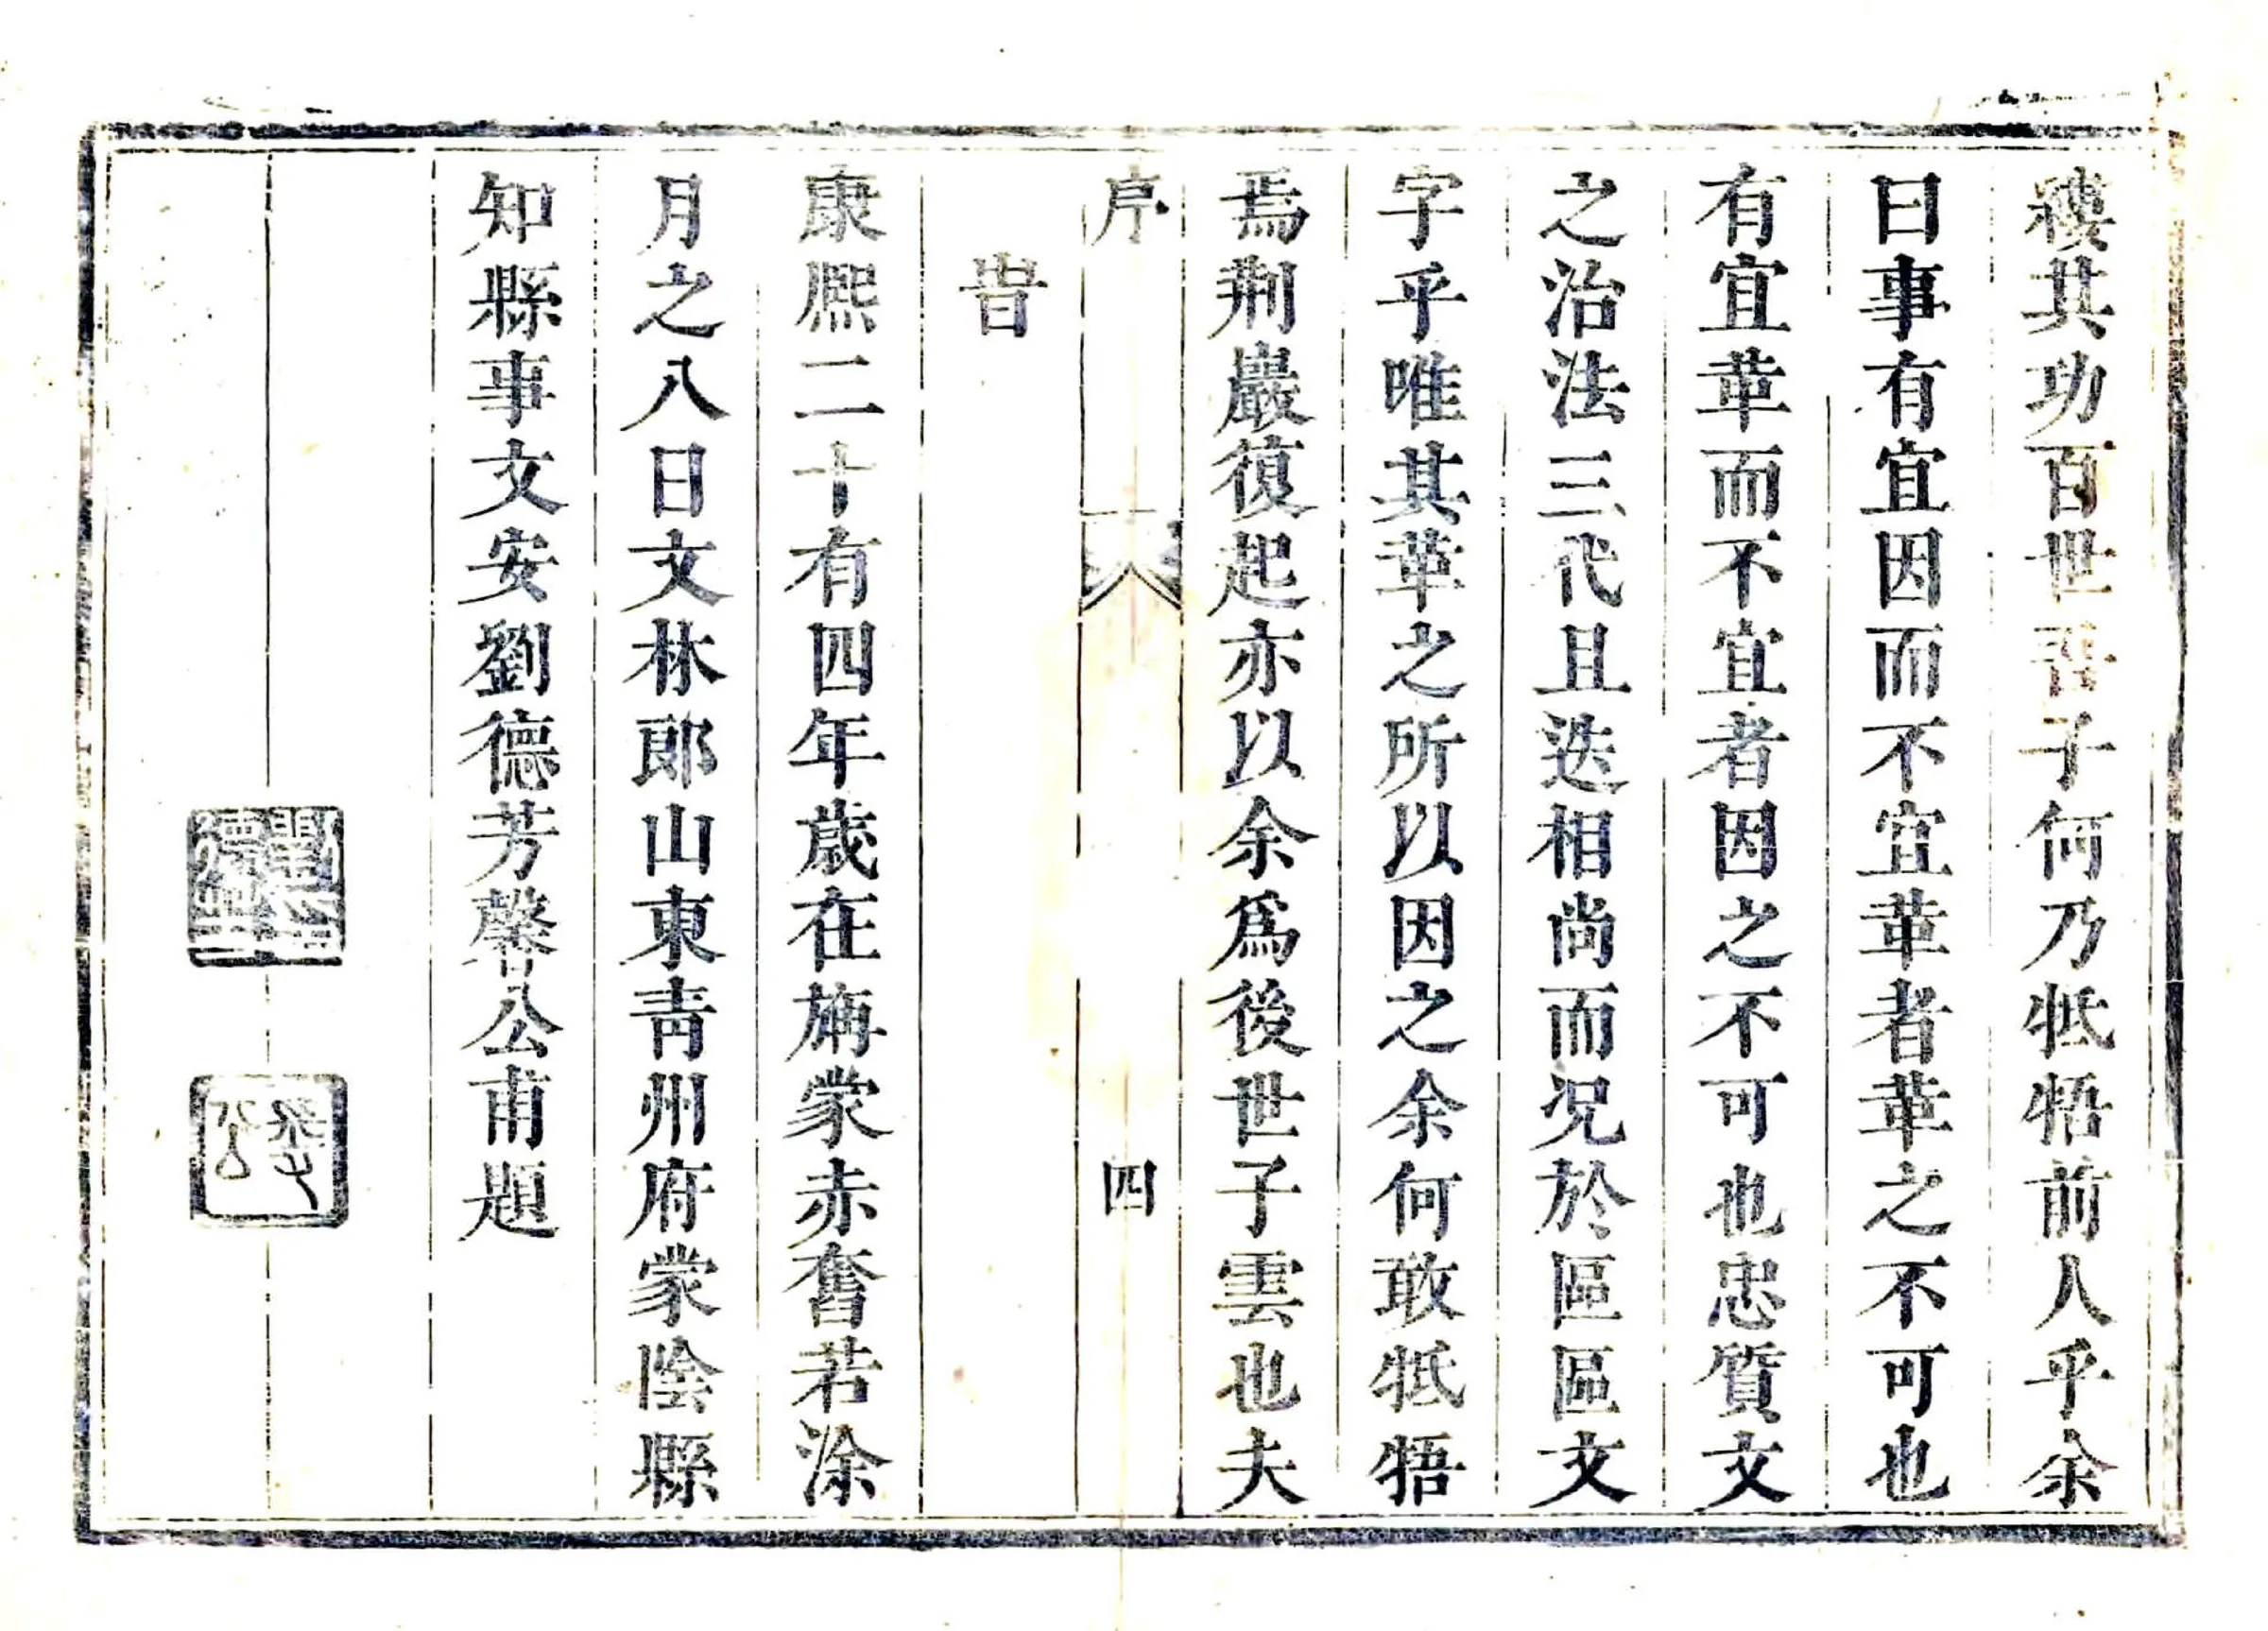 稷其功百世吾子何乃牴牾前人乎余
曰事有宜因而不宜革者革之不可也
有宜革而不宜者因之不可也忠質文
之治法三代且迭相尚而況於區區文
字乎唯其革之所以因之余何敢牴牾
焉荆巖復起亦以余爲後世子雲也夫
序
四
旹
康熙二十有四年歲在旃蒙赤奮若涂
月之八日文林郎山東青州府蒙陰縣
知縣事文安劉德芳馨公甫題